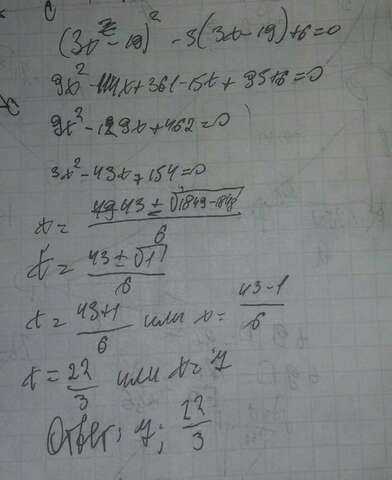 C
(3x - 19)² - 5(3x - 19) + 6 = 0
9x² - 114x + 361 - 15x + 95 + 6 = 0
9x² - 129x + 462 = 0
3x² - 43x + 154 = 0
x = 43 ± √1849 - 1848 / 6
x = 43 ± √1 / 6
x = 43+1 / 6 или x = 43-1 / 6
x = 22/3 или x = 7
Ответ: 7; 22/3